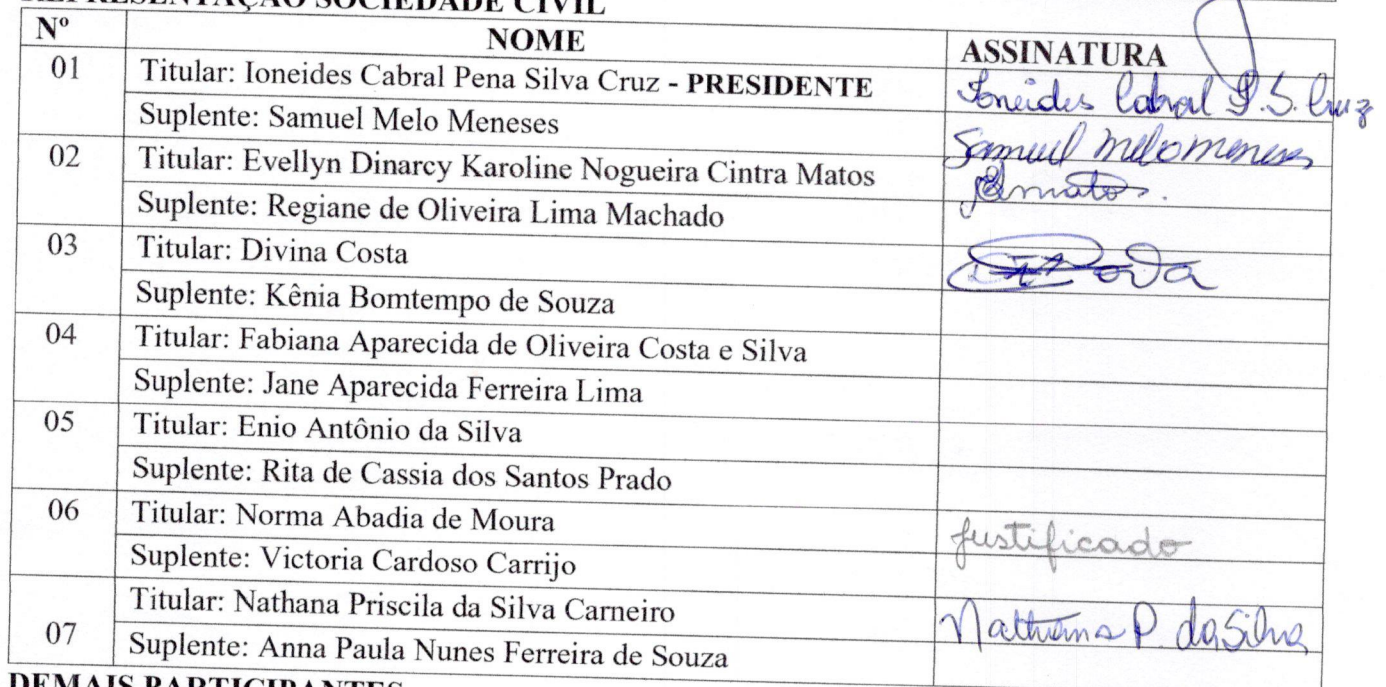 REPRESENTAÇÃO SOCIEDADE CIVIL
Nº NOME ASSINATURA
01 Titular: Ioneides Cabral Pena Silva Cruz - PRESIDENTE Ioneides Cabral P. S. Cruz
Suplente: Samuel Melo Meneses Samuel Melo Meneses
02 Titular: Evellyn Dinarcy Karoline Nogueira Cintra Matos
Suplente: Regiane de Oliveira Lima Machado
03 Titular: Divina Costa
Suplente: Kênia Bomtempo de Souza
04 Titular: Fabiana Aparecida de Oliveira Costa e Silva
Suplente: Jane Aparecida Ferreira Lima
05 Titular: Enio Antônio da Silva
Suplente: Rita de Cassia dos Santos Prado
06 Titular: Norma Abadia de Moura justificado
Suplente: Victoria Cardoso Carrijo
07 Titular: Nathana Priscila da Silva Carneiro Nathana P. da Silva
Suplente: Anna Paula Nunes Ferreira de Souza
DEMAIS PARTICIPANTES